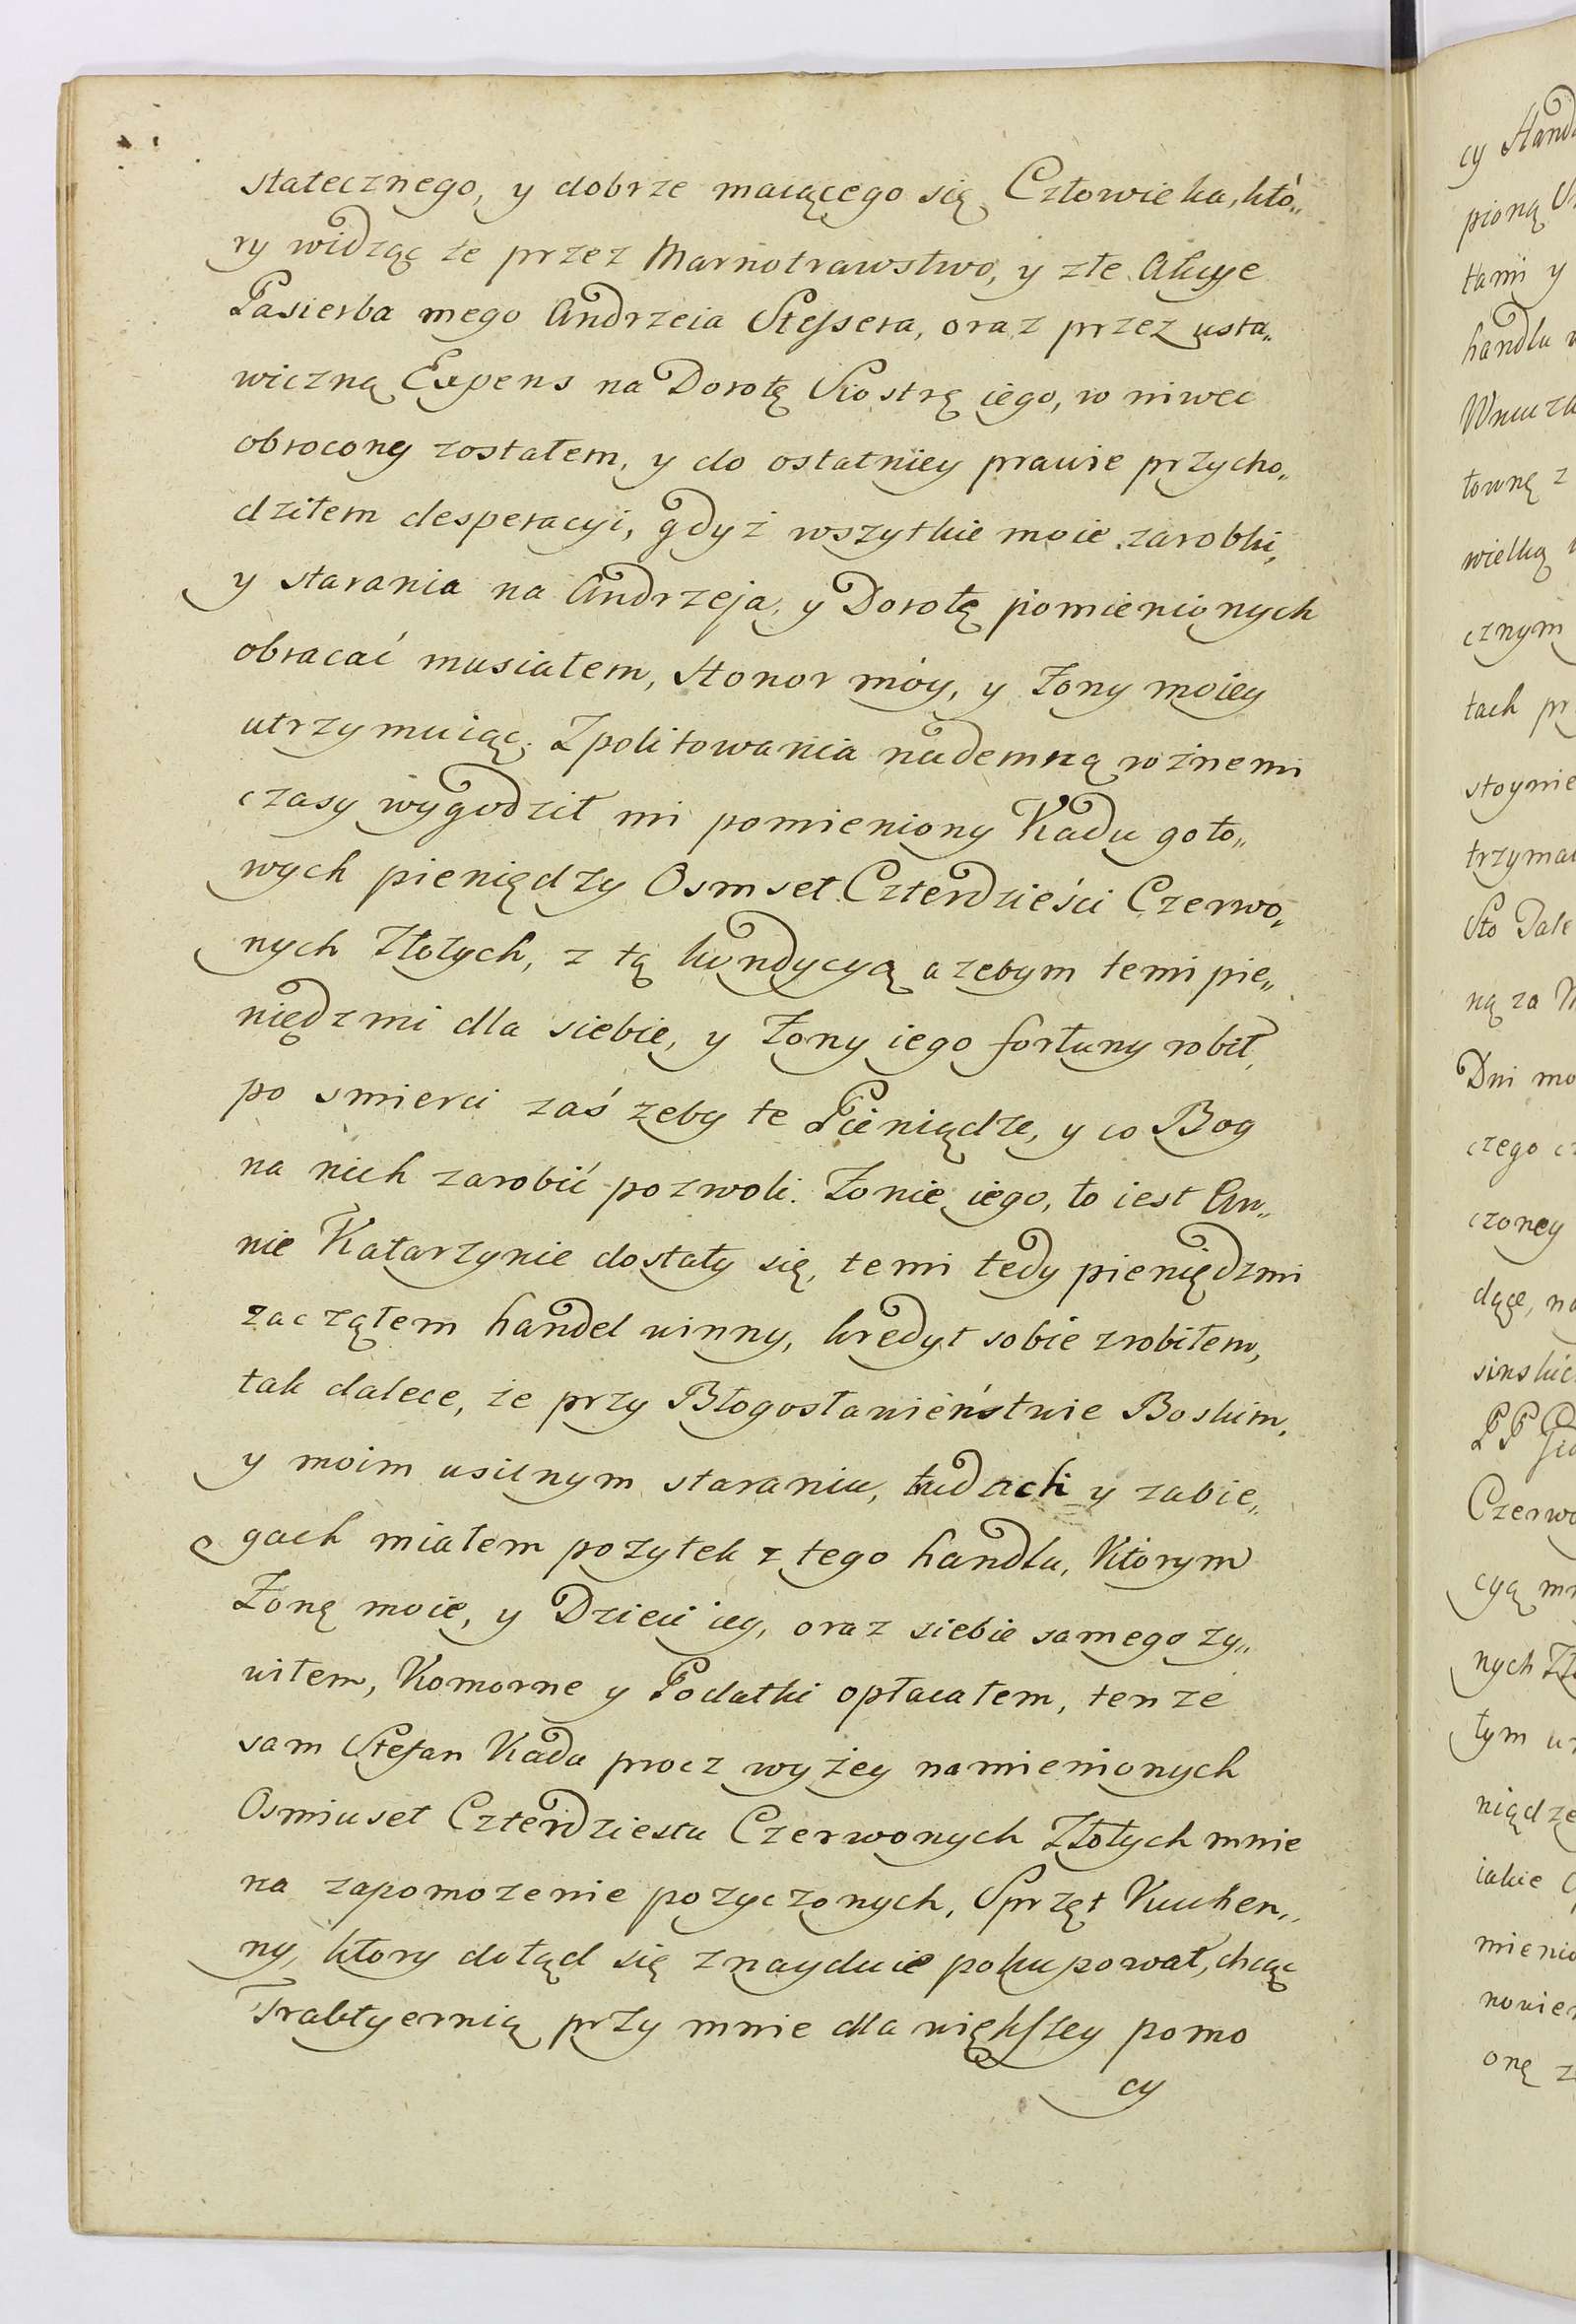 statecznego, y dobrze maiącego się Człowieka, któ„
ry widząc że przez Marnotrawstwo, y złe Akcye
Pasierba mego Andrzeia Stessera, oraz przez usta„
wiczną Expens na Dorotę Siostrę iego, w niwec
obrocony zostałem, y do ostatniey prawie przycho„
dziłem desperacyi, gdyż wszytkie moie zarobki,
y starania na Andrzeja, y Dorotę pomienionych
obracać musiałem, Honor móy, y Zony moiey
utrzymuiąc. Zpolitowania nademną rożnemi
czasy wygodził mi pomieniony Kadu goto„
wych pieniędzy Osmset Czterdzieści Czerwo„
nych Złotych, z tą kondycyą azebym temi pie„
niędzmi dla siebie, y Zony iego fortuny robił,
po smierci zaś zeby te Pieniądze, y co Bog
na nich zarobić pozwoli. Zonie iego, to iest An„
nie Katarzynie dostały się, temi tedy pieniędzmi
zacząłem handel winny, kredyt sobie zrobiłem,
tak dalece, że przy Błogosławieństwie Boskim,
y moim usilnym staraniu, tudach y zabie„
gach miałem pozytek z tego handlu, Którym
Zonę moię, y Dzieci iey, oraz siebie samego zy„
wiłem, Komorne y Podatki opłacałem, tenze
sam Stefan Kadu procz wyżey namienionych
Osmiuset Czterdziestu Czerwonych Złotych mnie
na zapomozenie pozyczonych, Sprzęt Kuchen„
ny, ktory dotąd się znayduie pokupował, chcąc
Traktyernią przy mnie dla większey pomo
cy
cy Hand
pioną
tami y
handlu
Wnuzk
townę z
wielką
cznym
tach pr
stoynie
trzymai
Sto Tale
ną za
Dni mo
czego cz
czoney
dącę, na
sinskic
PP
Czerwo
cyą mn
nych Zł
tym
niądze
iakie
mienio
nowien
onę z